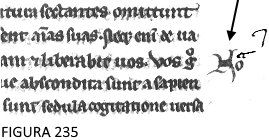 ituta sectantes omittunt
dent aīas suas. sicq; eīn de ua
am t liberabit uos. Vos g̊
ue abscondita sunt a sapien
sunt sedula cogitatione uersa
FIGURA 235